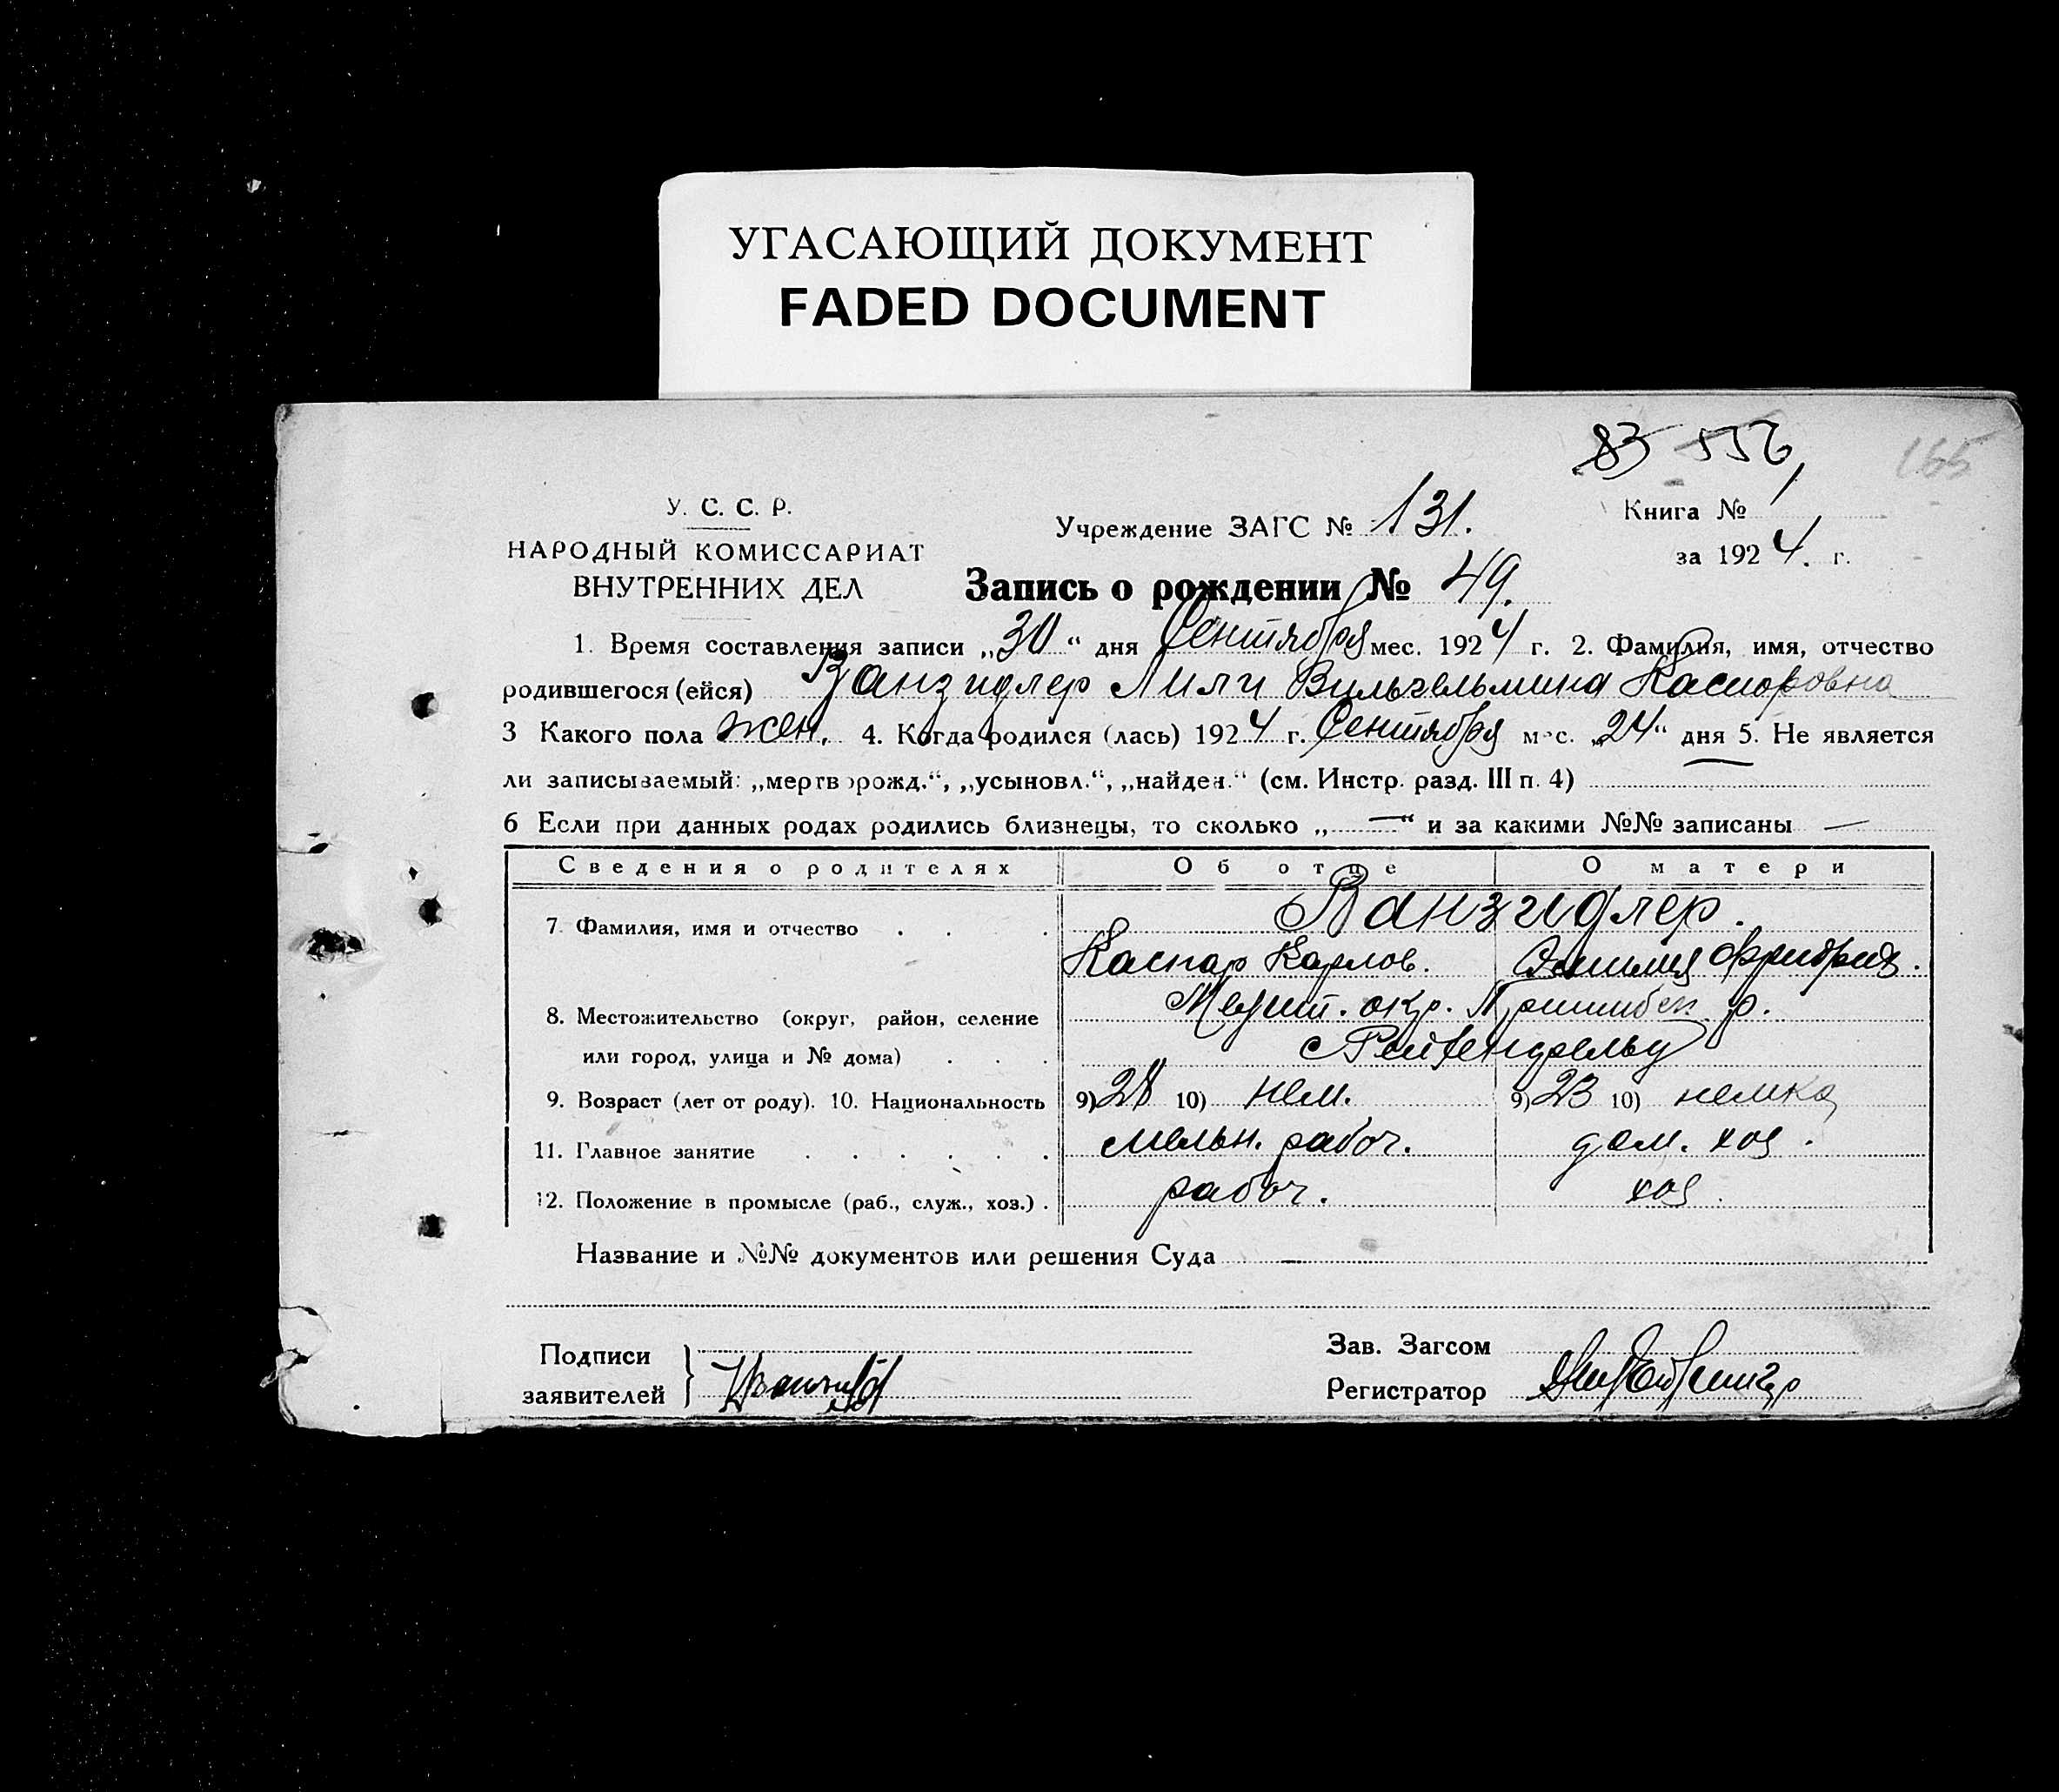 УГАСАЮЩИЙ ДОКУМЕНТ
FADED DOCUMENT
83 556 165
У. С. С. Р.
НАРОДНЫЙ КОМИССАРИАТ
ВНУТРЕННИХ ДЕЛ
Учреждение ЗАГС № 131.
Книга № 1
за 1924. г.
Запись о рождении № 49.
1. Время составления записи „30“ дня Сентября мес. 1924 г. 2. Фамилия, имя, отчество
родившегося (ейся) Ванзидлер Лили Вильгельмина Каспаровна
3 Какого пола жен. 4. Когда родился (лась) 1924 г. Сентября мес. „24“ дня 5. Не является
ли записываемый: „мертворожд.“, „усыновл.“, „найден.“ (см. Инстр. разд. III п. 4)
6 Если при данных родах родились близнецы, то сколько „—“ и за какими №№ записаны —
Сведения о родителях Об отце О матери
7. Фамилия, имя и отчество Ванзидлер.
Каспар Карлов. Эмилия Фридрих.
8. Местожительство (округ, район, селение Мелит. окр. Пришибск. р.
или город, улица и № дома) с Рейхенфельд
9. Возраст (лет от роду). 10. Национальность 9) 28 10) нем. 9) 23 10) немка
11. Главное занятие мельн. рабоч. дом. хоз.
12. Положение в промысле (раб., служ., хоз.) рабоч. хоз.
Название и №№ документов или решения Суда —
Подписи
заявителей
Зав. Загсом
Регистратор